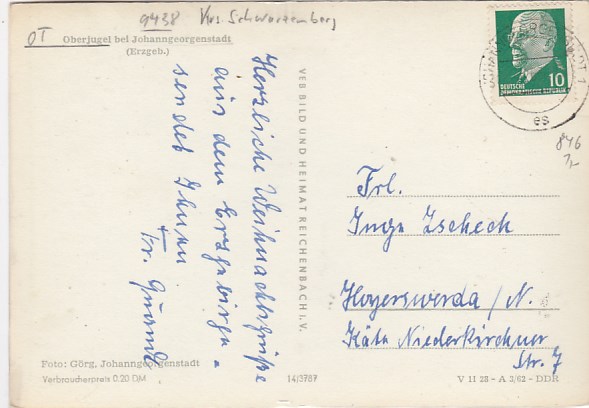 9438 Krs Schwarzenberg
OT
Oberjugel bei Johanngeorgenstadt
(Erzgeb.)
Herzliche Weihnachtsgrüße
aus dem Erzgebirge
sendet Ihnen
Fr.
VEB BILD UND HEIMAT REICHENBACH I. V.
10
DEUTSCHE
DEMOKRATISCHE REPUBLIK
es
846
Frl.
Inge Zschech
Hoyerswerda / N.
Käte Niederkirchner
Str. 7
Foto: Görg, Johanngeorgenstadt
Verbraucherpreis 0.20 DM
14/3787
V 11 28 - A 3/62 - DDR